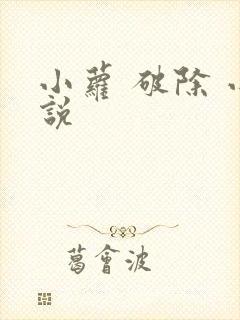 小蘿 破除 小
說
葛會波